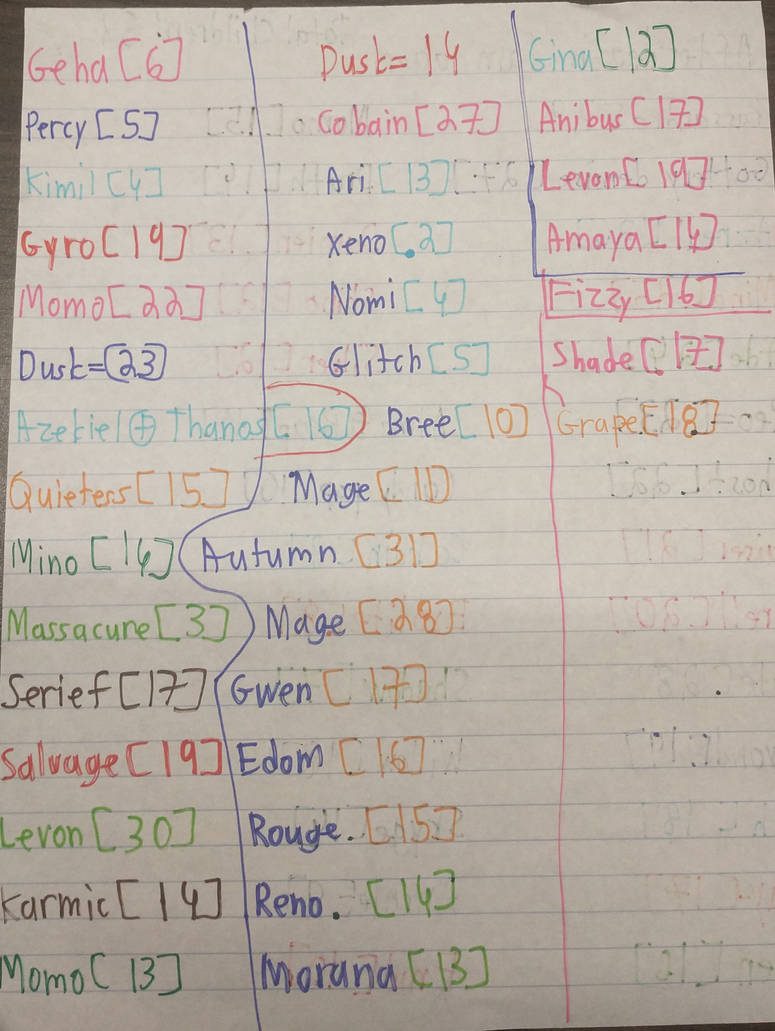 Geha [6]
Percy [5]
Kimil [4]
Gyro [19]
Momo [22]
Dusk=[23]
Azekiel ⊕ Thanos [16]
Quietess [15]
Mino [14]
Massacure [3]
Serief [17]
Salvage [19]
Levon [30]
Karmic [14]
Momo [13]
Dusk= 14
Cobain [27]
Ari [13]
Xeno [2]
Nomi [4]
Glitch [5]
Bree [10]
Mage [11]
Autumn [31]
Mage [28]
Gwen [17]
Edom [16]
Rouge. [15]
Reno. [14]
Morana [13]
Gina [12]
Anibus [17]
Levon [19]
Amaya [14]
Fizzy [16]
Shade [17]
Grape [18]